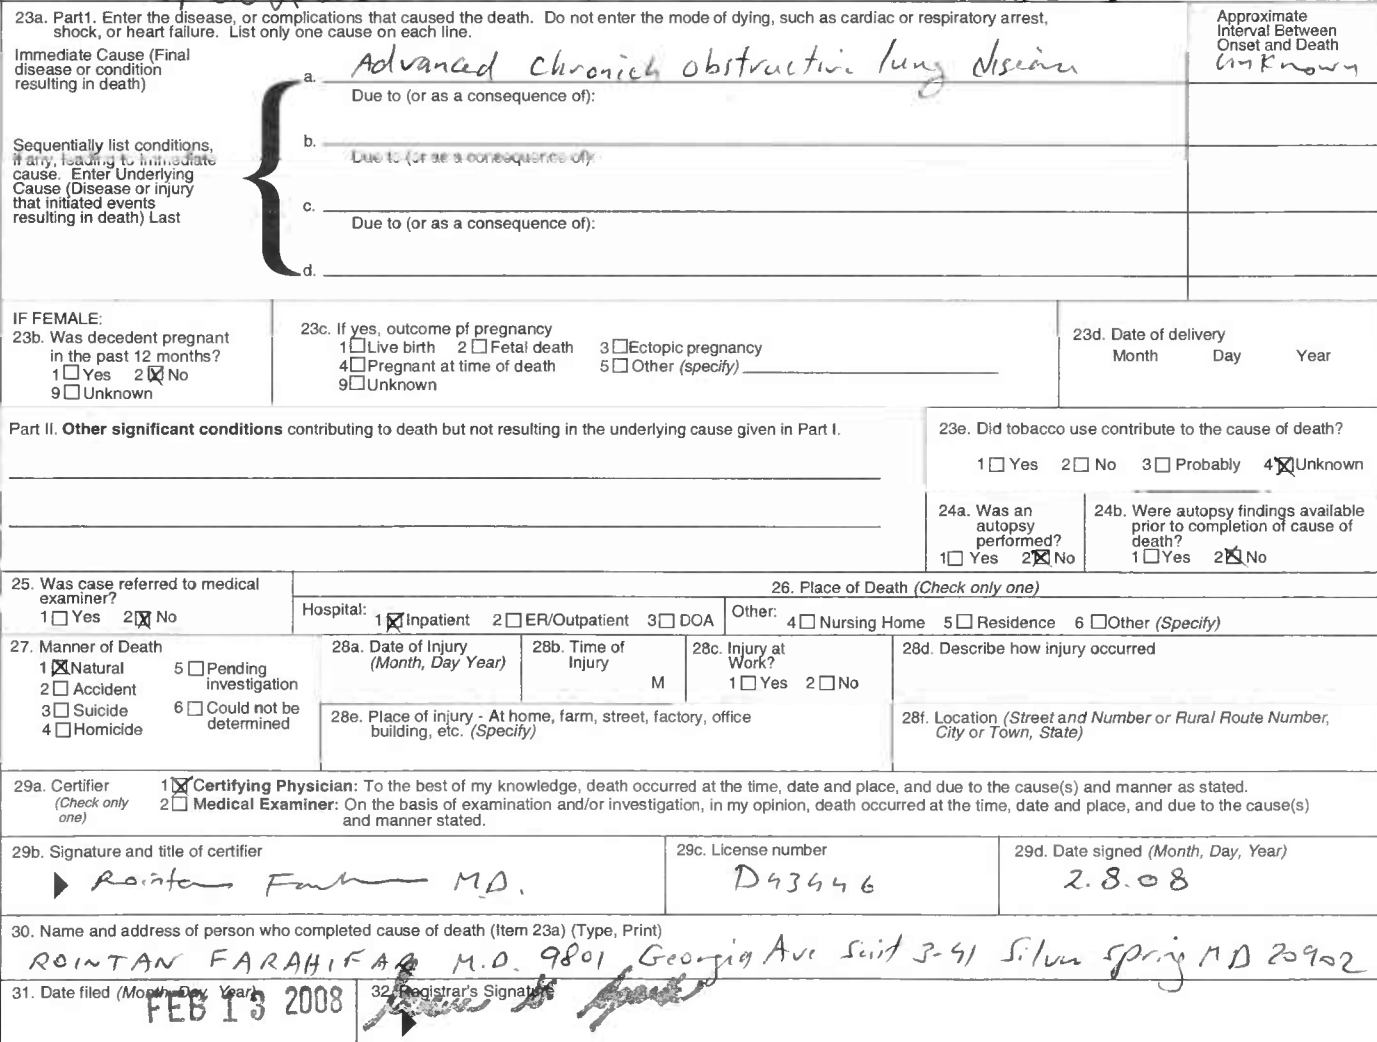 23a. Part1. Enter the disease, or complications that caused the death. Do not enter the mode of dying, such as cardiac or respiratory arrest,
shock, or heart failure. List only one cause on each line.
Approximate
Interval Between
Onset and Death
Unknown
Immediate Cause (Final
disease or condition
resulting in death)
a. Advanced Chronich obstructive lung
Due to (or as a consequence of):
b.
Sequentially list conditions,
if any, leading to immediate
cause. Enter Underlying
Cause (Disease or injury
that initiated events
resulting in death) Last
Due to (or as a consequence of):
c.
Due to (or as a consequence of):
d.
IF FEMALE:
23b. Was decedent pregnant
in the past 12 months?
1☐Yes 2☒No
9☐Unknown
23c. If yes, outcome pf pregnancy
1☐Live birth 2☐Fetal death 3☐Ectopic pregnancy
4☐Pregnant at time of death 5☐Other (specify)
9☐Unknown
23d. Date of delivery
Month Day Year
Part II. Other significant conditions contributing to death but not resulting in the underlying cause given in Part I.
23e. Did tobacco use contribute to the cause of death?
1☐Yes 2☐No 3☐Probably 4☒Unknown
24a. Was an
autopsy
performed?
1☐Yes 2☒No
24b. Were autopsy findings available
prior to completion of cause of
death?
1☐Yes 2☒No
25. Was case referred to medical
examiner?
1☐Yes 2☒No
26. Place of Death (Check only one)
Hospital: 1☒Inpatient 2☐ER/Outpatient 3☐DOA Other: 4☐Nursing Home 5☐Residence 6☐Other (Specify)
27. Manner of Death
1☒Natural 5☐Pending
investigation
2☐Accident
3☐Suicide 6☐Could not be
determined
4☐Homicide
28a. Date of Injury
(Month, Day Year)
28b. Time of
Injury
M
28c. Injury at
Work?
1☐Yes 2☐No
28d. Describe how injury occurred
28e. Place of injury - At home, farm, street, factory, office
building, etc. (Specify)
28f. Location (Street and Number or Rural Route Number,
City or Town, State)
29a. Certifier
(Check only
one)
1☒Certifying Physician: To the best of my knowledge, death occurred at the time, date and place, and due to the cause(s) and manner as stated.
2☐Medical Examiner: On the basis of examination and/or investigation, in my opinion, death occurred at the time, date and place, and due to the cause(s)
and manner stated.
29b. Signature and title of certifier
M.D.
29c. License number
D43446
29d. Date signed (Month, Day, Year)
2.8.08
30. Name and address of person who completed cause of death (Item 23a) (Type, Print)
ROINTAN FARAHIFAR M.D. 9801 Georgia Ave Suit 3-41 Silver Spring MD 20902
31. Date filed (Month, Day, Year)
FEB 13 2008
32. Registrar's Signature